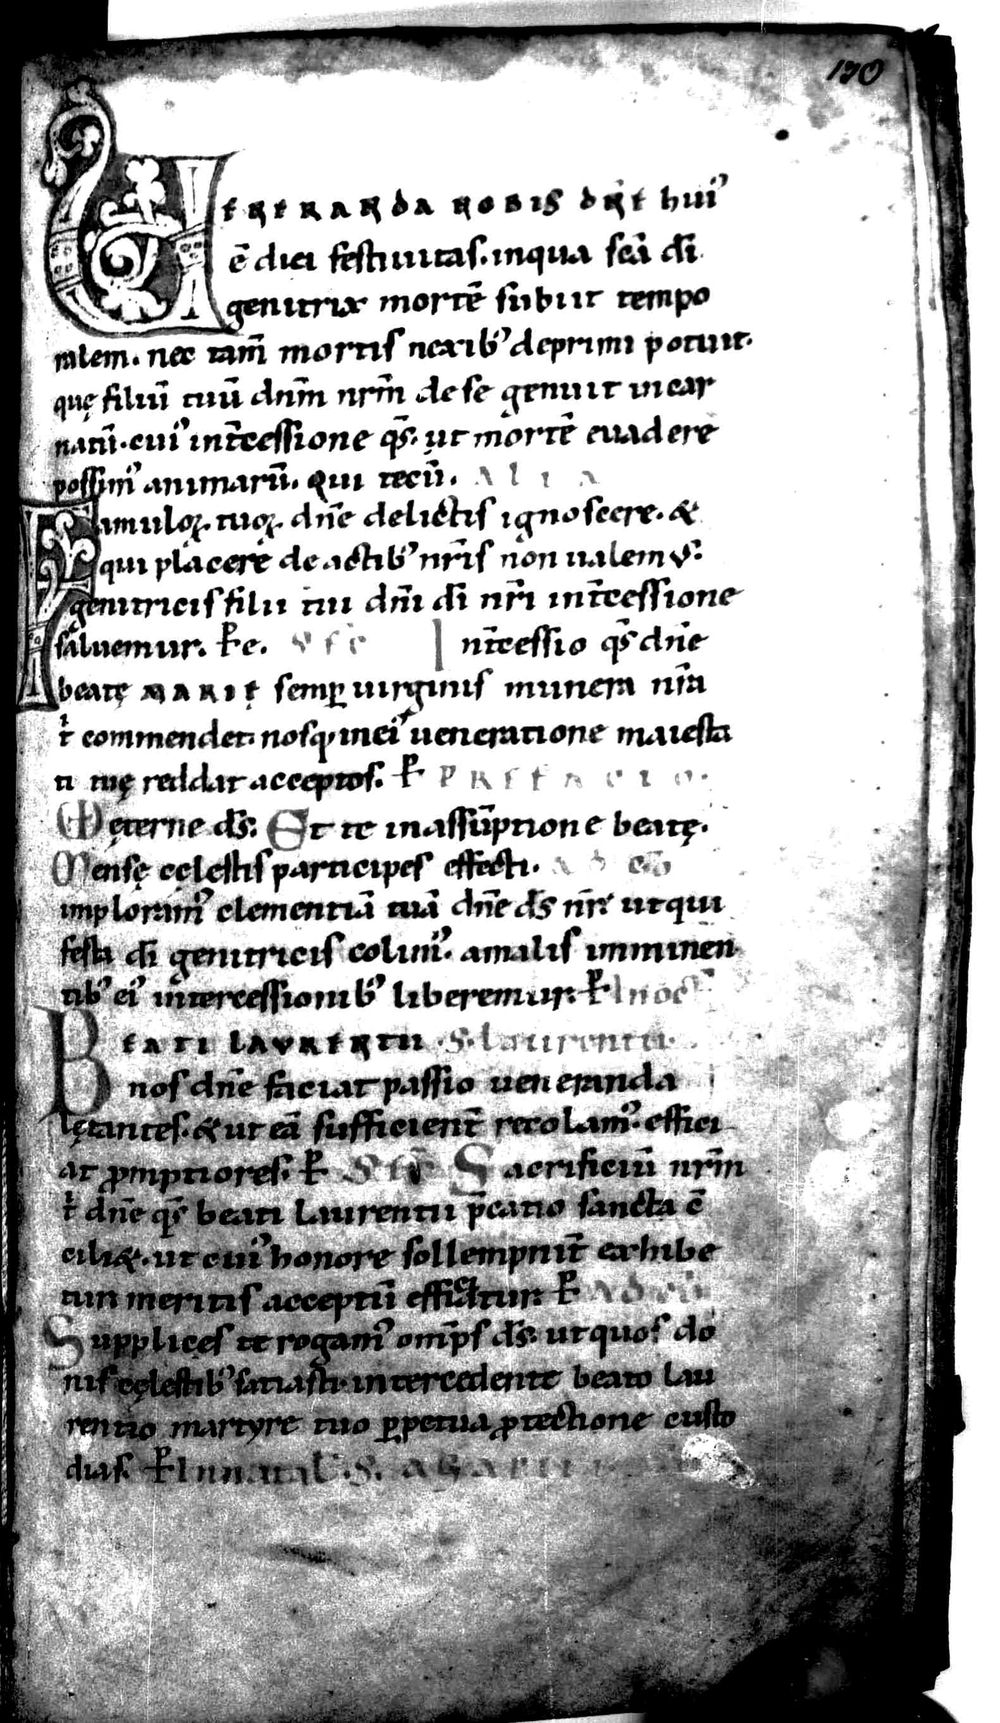 170
UENERANDA NOBIS DNE hui᾽
ē diei festiuitas. inqua scā dī
genitrix mortē subiit tempo
ralem. nec tam̄ mortis nexib᾽ deprimi potuit.
quę filiū tuū dnm̄ nrm̄ de se genuit incar
natū. cui᾽ int̄cessione qs̄. ut mortē euadere
possim᾽ animarū. Qui tecū. Alia
Famuloꝝ. tuoꝝ. dnē delictis ignoscere. &
qui placere de actib᾽ nrīs non ualem᾽.
genitricis filii tui dnī dī nrī int̄cessione
saluemur. P̄ e. SEC Int̄cessio qs̄ dnē
beatę MARIE semꝑ uirginis munera nrā
t᾽ commendet. nosq; inei᾽ ueneratione maiesta
ti tuę reddat acceptos. P̄ PREFACIO.
UD ęterne ds̄. Et te inassūptione beatę.
Mensę cęlestis participes effecti. AD CO
imploram᾽ clementiā tuā dnē ds̄ nr̄. ut qui
festa dī genitricis colim᾽. amalis imminen
tib᾽ ei᾽ intercessionib᾽ liberemur. P̄ In oc̄
BEATI LAURENTII S. Laurentii.
nos dnē faciat passio ueneranda
lętantes. & ut eā sufficient̄ recolam᾽. effici
at ꝓmptiores. P̄ SEC Sacrificiū nrm̄
t᾽ dnē qs̄ beati Laurentii p̄catio sancta c̄
ciliet. ut cui᾽ honore sollempnit̄ exhibe
tur. meritis acceptū efficiatur. P̄ AD CO
Supplices te rogam᾽ omp̄s ds̄. ut quos do
nis cęlestib᾽ satiasti. intercedente beato Lau
rentio martyre tuo ꝑpetua ꝓtectione custo
dias. P̄ In natal̄. S.